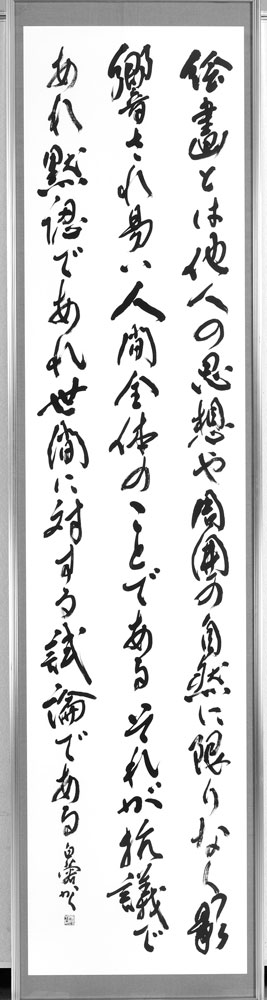 絵畫とは他人の思想や周囲の自然に限りなく影
響され易い人間全体のことであるそれが抗議で
あれ黙認であれ世間に対する試論である 白露かく